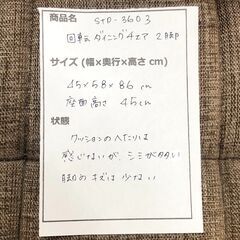 商品名 STD-3603
回転ダイニングチェア 2脚
サイズ (幅×奥行×高さ cm)
45×58×86 cm
座面高さ 45cm
状態
クッションのへたりは
感じないが、シミが多い
脚のキズは少ない